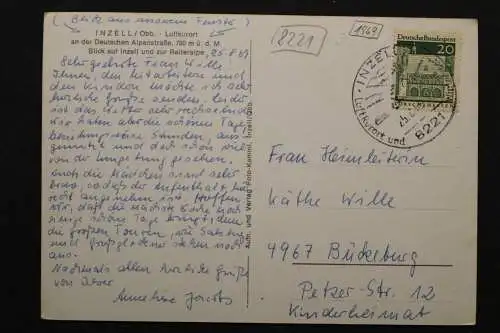 (Blick aus unserem Fenster)
8221
1969
INZELL/Obb. - Luftkurort
an der Deutschen Alpenstraße, 700 m ü. d. M.
Blick auf Inzell und zur Reiteralpe
25.8.69
Sehr geehrte Frau Wille!
Ihnen, den Mitarbeitern und
den Kindern möchte ich sehr
herzliche Grüße senden. Leider
ist das Wetter sehr
wir haben aber die schönen Tage,
Stunden, aus-
genutzt und doch schon viel
von der Umgebung gesehen.
Auch die Mädchen sind sehr
brav, sodaß der Aufenthalt hier
recht angenehm ist. Hoffen
wir, daß die nächste Woche noch
einige schöne Tage bringt, denn
die großen Touren, wie Salzburg
und Großglockner stehen noch
aus.
Nochmals allen herzliche Grüße
von Ihrer
Anneliese Jacobs
Aufn. und Verlag Foto-Kamml, Inzell/Obb.
Deutsche Bundespost
20
INZELL
Luftkurort und
8221
Frau Heimleiterin
Käthe Wille
4967 Bückeburg
Petzer-Str. 12
Kinderheimat